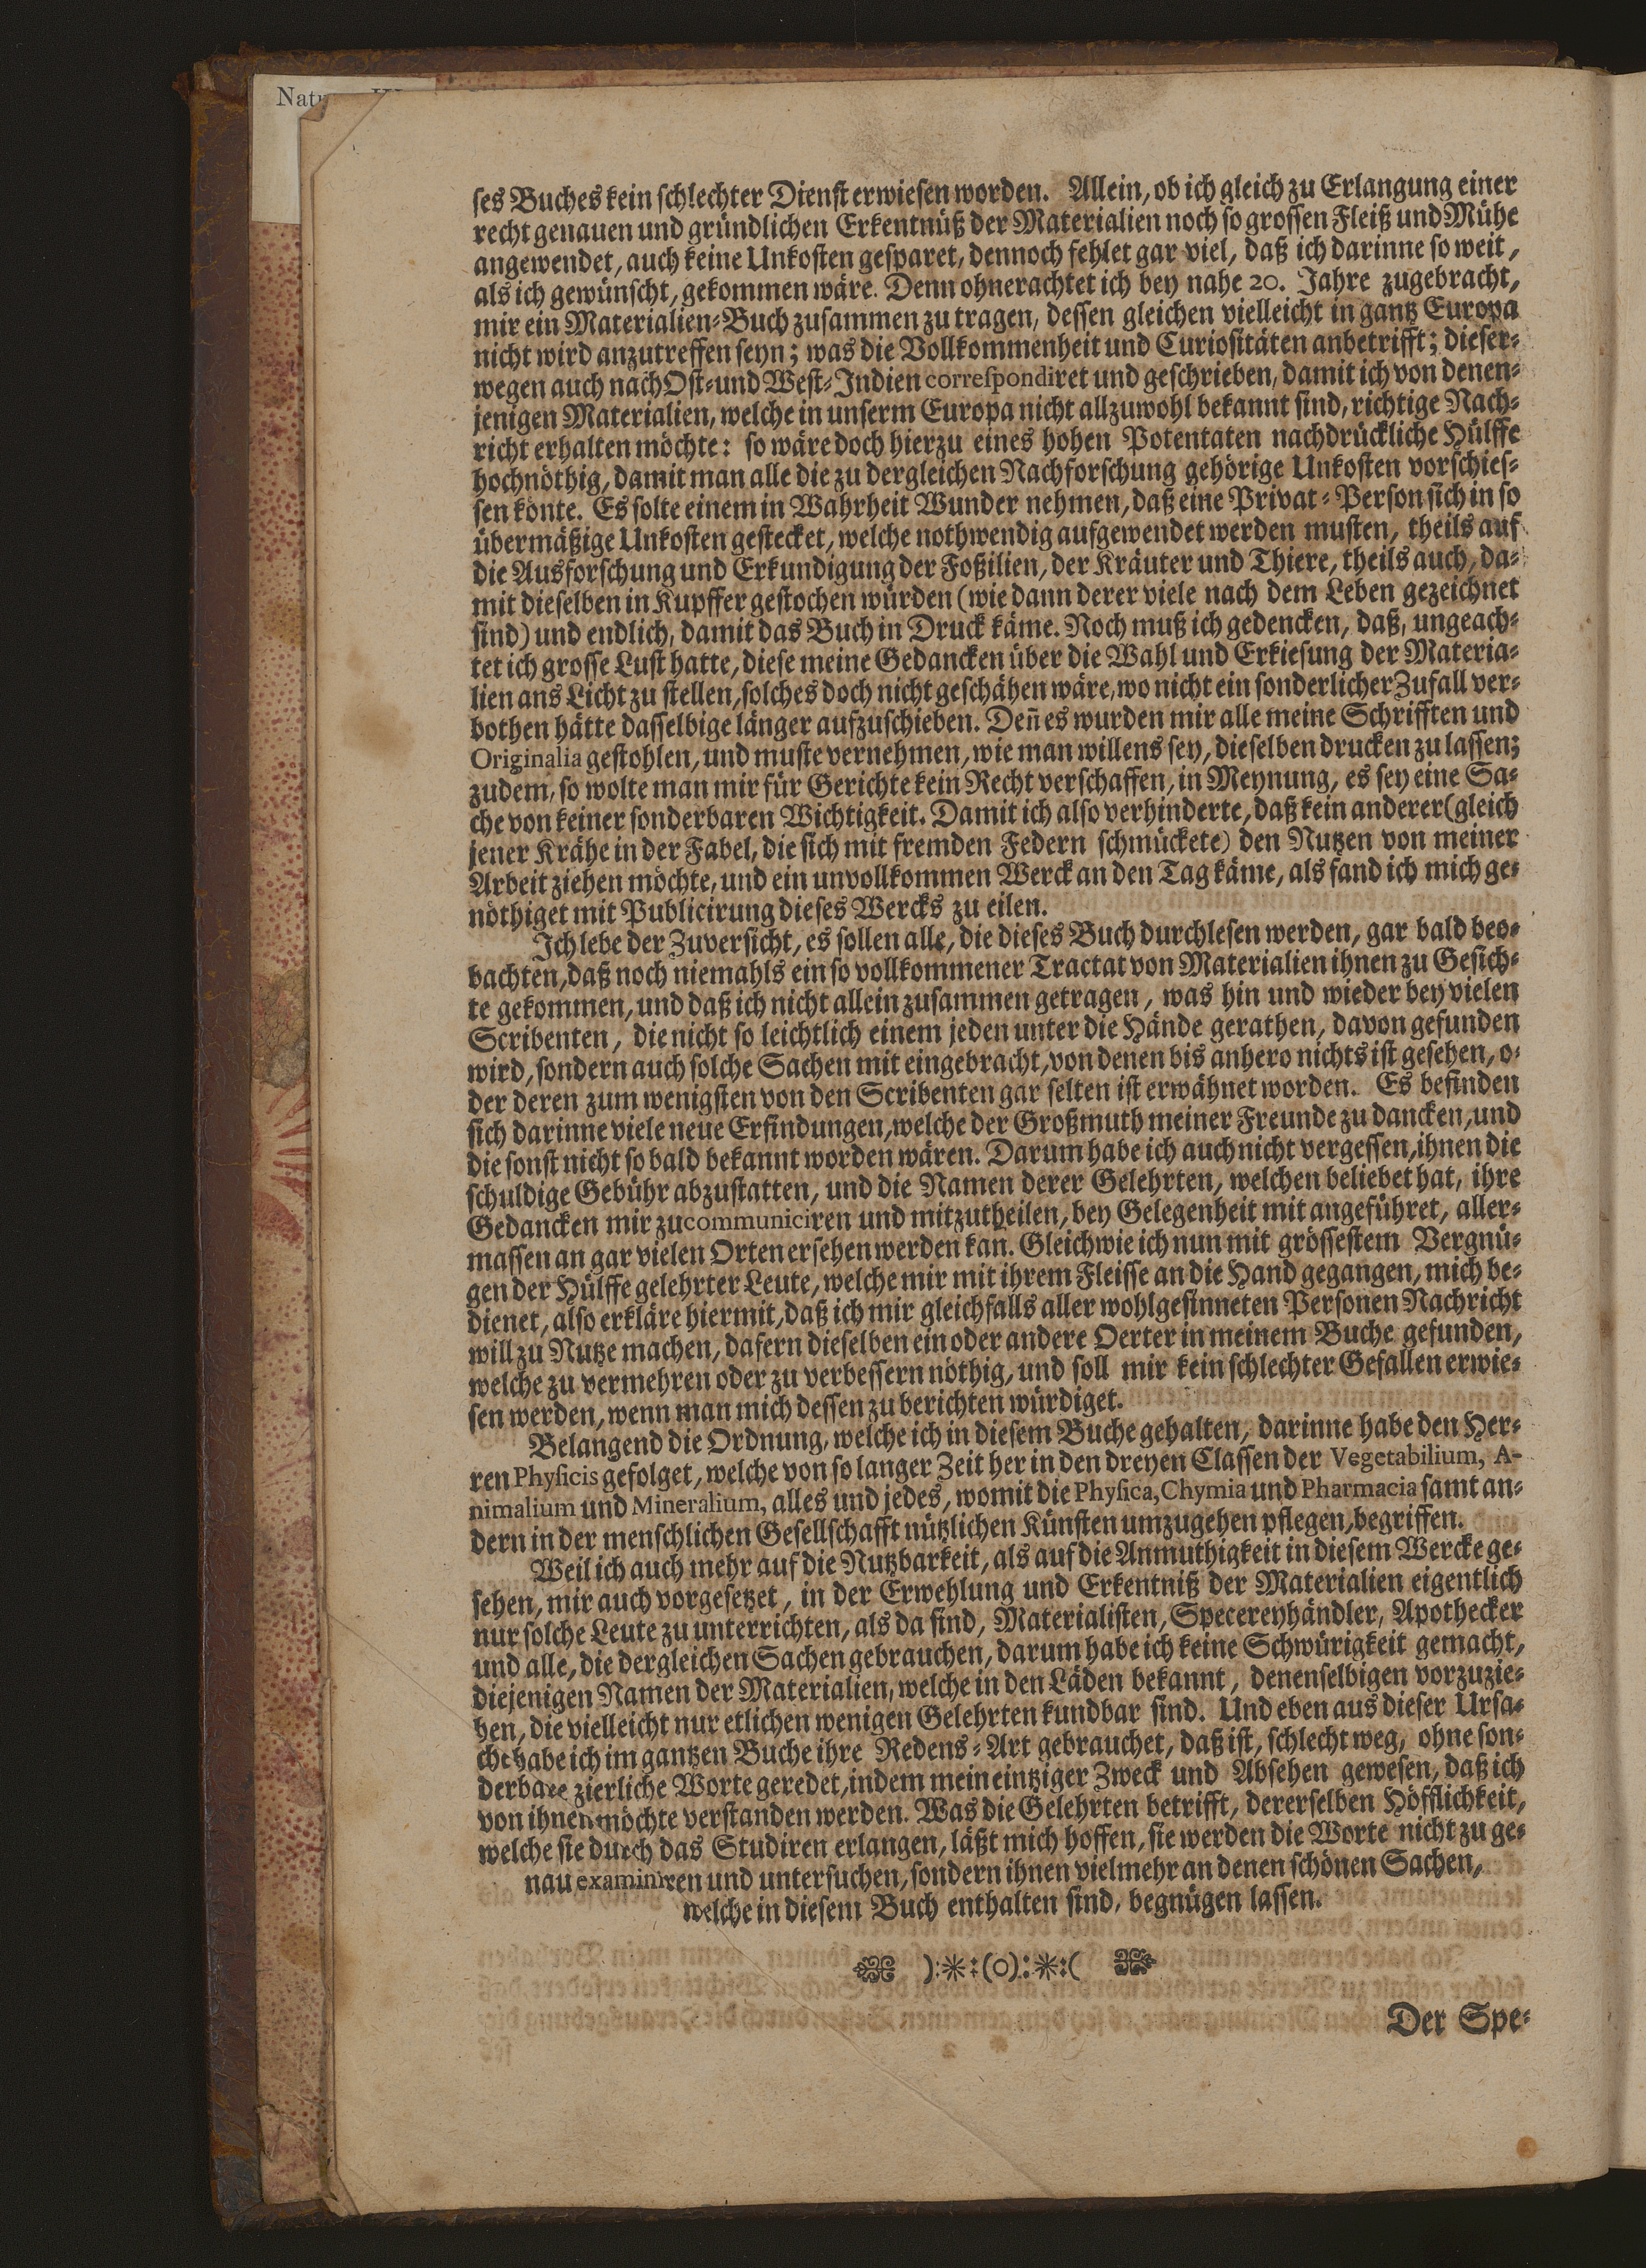 Natu
ſes Buches kein ſchlechter Dienſt erwieſen worden. Allein, ob ich gleich zu Erlangung einer
recht genauen und gründlichen Erkentnüß der Materialien noch ſo groſſen Fleiß und Mühe
angewendet, auch keine Unkoſten geſparet, dennoch fehlet gar viel, daß ich darinne ſo weit,
als ich gewünſcht, gekommen wäre. Denn ohnerachtet ich bey nahe 20. Jahre zugebracht,
mir ein Materialien-Buch zuſammen zu tragen, deſſen gleichen vielleicht in gantz Europa
nicht wird anzutreffen ſeyn; was die Vollkommenheit und Curioſitäten anbetrifft; dieſer-
wegen auch nach Oſt- und Weſt-Indien correſpondiret und geſchrieben, damit ich von denen-
jenigen Materialien, welche in unſerm Europa nicht allzuwohl bekannt ſind, richtige Nach-
richt erhalten möchte: ſo wäre doch hierzu eines hohen Potentaten nachdrückliche Hülffe
hochnöthig, damit man alle die zu dergleichen Nachforſchung gehörige Unkoſten vorſchieſ-
ſen könte. Es ſolte einem in Wahrheit Wunder nehmen, daß eine Privat-Perſon ſich in ſo
übermäßige Unkoſten geſtecket, welche nothwendig aufgewendet werden muſten, theils auf
die Ausforſchung und Erkundigung der Foßilien, der Kräuter und Thiere, theils auch, da-
mit dieſelben in Kupffer geſtochen würden (wie dann derer viele nach dem Leben gezeichnet
ſind) und endlich, damit das Buch in Druck käme. Noch muß ich gedencken, daß, ungeach-
tet ich groſſe Luſt hatte, dieſe meine Gedancken über die Wahl und Erkieſung der Materia-
lien ans Licht zu ſtellen, ſolches doch nicht geſchähen wäre, wo nicht ein ſonderlicher Zufall ver-
bothen hätte daſſelbige länger aufzuſchieben. Deñ es wurden mir alle meine Schrifften und
Originalia geſtohlen, und muſte vernehmen, wie man willens ſey, dieſelben drucken zu laſſen;
zudem, ſo wolte man mir für Gerichte kein Recht verſchaffen, in Meynung, es ſey eine Sa-
che von keiner ſonderbaren Wichtigkeit. Damit ich alſo verhinderte, daß kein anderer (gleich
jener Krähe in der Fabel, die ſich mit fremden Federn ſchmückete) den Nutzen von meiner
Arbeit ziehen möchte, und ein unvollkommen Werck an den Tag käme, als fand ich mich ge-
nöthiget mit Publicirung dieſes Wercks zu eilen.
Ich lebe der Zuverſicht, es ſollen alle, die dieſes Buch durchleſen werden, gar bald beo-
bachten, daß noch niemahls ein ſo vollkommener Tractat von Materialien ihnen zu Geſich-
te gekommen, und daß ich nicht allein zuſammen getragen, was hin und wieder bey vielen
Scribenten, die nicht ſo leichtlich einem jeden unter die Hände gerathen, davon gefunden
wird, ſondern auch ſolche Sachen mit eingebracht, von denen bis anhero nichts iſt geſehen, o-
der deren zum wenigſten von den Scribenten gar ſelten iſt erwähnet worden. Es befinden
ſich darinne viele neue Erfindungen, welche der Großmuth meiner Freunde zu dancken, und
die ſonſt nicht ſo bald bekannt worden wären. Darum habe ich auch nicht vergeſſen, ihnen die
ſchuldige Gebühr abzuſtatten, und die Namen derer Gelehrten, welchen beliebet hat, ihre
Gedancken mir zu communiciren und mitzutheilen, bey Gelegenheit mit angeführet, aller-
maſſen an gar vielen Orten erſehen werden kan. Gleichwie ich nun mit gröſſeſtem Vergnü-
gen der Hülffe gelehrter Leute, welche mir mit ihrem Fleiſſe an die Hand gegangen, mich be-
dienet, alſo erkläre hiermit, daß ich mir gleichfalls aller wohlgeſinneten Perſonen Nachricht
will zu Nutze machen, dafern dieſelben ein oder andere Oerter in meinem Buche gefunden,
welche zu vermehren oder zu verbeſſern nöthig, und ſoll mir kein ſchlechter Gefallen erwie-
ſen werden, wenn man mich deſſen zu berichten würdiget.
Belangend die Ordnung, welche ich in dieſem Buche gehalten, darinne habe den Her-
ren Phyſicis gefolget, welche von ſo langer Zeit her in den dreyen Claſſen der Vegetabilium, A-
nimalium und Mineralium, alles und jedes, womit die Phyſica, Chymia und Pharmacia ſamt an-
dern in der menſchlichen Geſellſchafft nützlichen Künſten umzugehen pflegen, begriffen.
Weil ich auch mehr auf die Nutzbarkeit, als auf die Anmuthigkeit in dieſem Wercke ge-
ſehen, mir auch vorgeſetzet, in der Erwehlung und Erkentniß der Materialien eigentlich
nur ſolche Leute zu unterrichten, als da ſind, Materialiſten, Specereyhändler, Apothecker
und alle, die dergleichen Sachen gebrauchen, darum habe ich keine Schwürigkeit gemacht,
diejenigen Namen der Materialien, welche in den Läden bekannt, denenſelbigen vorzuzie-
hen, die vielleicht nur etlichen wenigen Gelehrten kundbar ſind. Und eben aus dieſer Urſa-
che habe ich im gantzen Buche ihre Redens-Art gebrauchet, daß iſt, ſchlecht weg, ohne ſon-
derbare zierliche Worte geredet, indem mein eintziger Zweck und Abſehen geweſen, daß ich
von ihnen möchte verſtanden werden. Was die Gelehrten betrifft, dererſelben Höfflichkeit,
welche ſie durch das Studiren erlangen, läßt mich hoffen, ſie werden die Worte nicht zu ge-
nau examiniren und unterſuchen, ſondern ihnen vielmehr an denen ſchönen Sachen,
welche in dieſem Buch enthalten ſind, begnügen laſſen.
):*:(o):*:(
Der Spe-